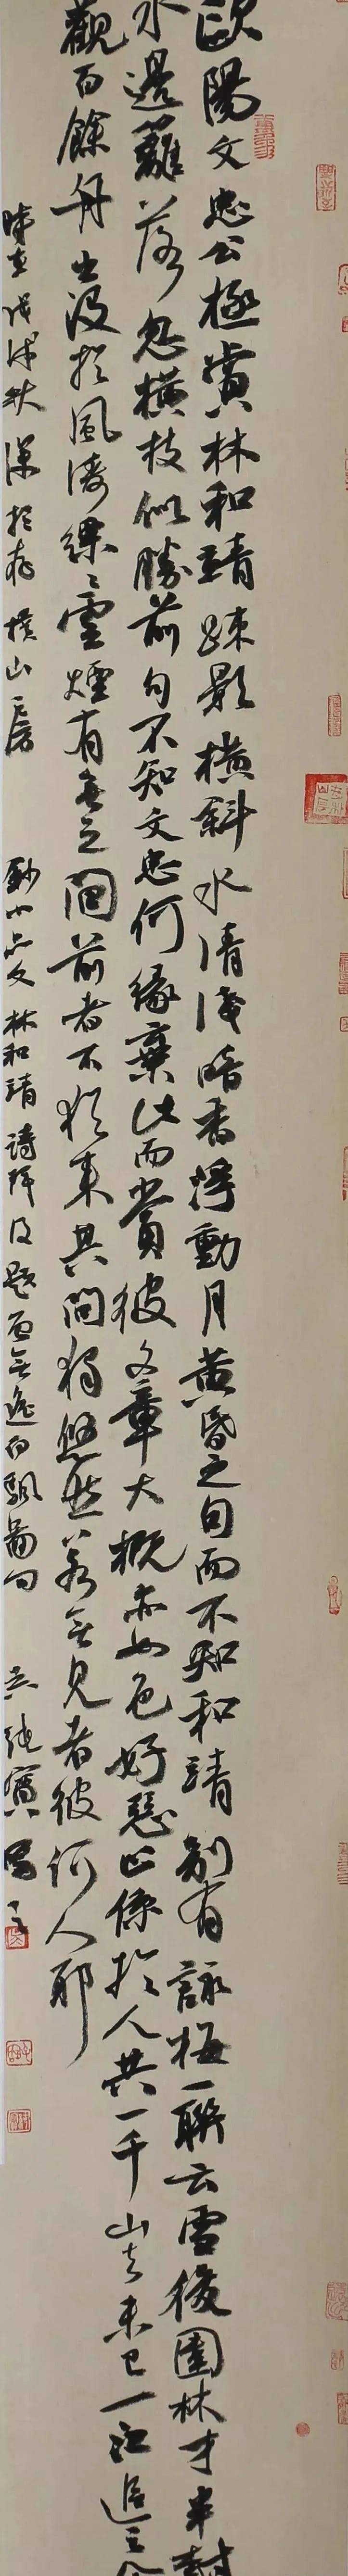 歐陽文忠公極賞林和靖疎影橫斜水清淺暗香浮動月黃昏之句而不知和靖別有詠梅一聯云雪後園林才半樹
水邊籬落忽橫枝似勝前句不知文忠何緣棄此而賞彼文章大概亦如色好惡止係於人共一千山去未已一江追之
觀百餘舟出沒於風濤雲煙有無之間前者不來其間獨悠然若無見者彼何人耶
時在戊戌秋深於橫山房 鈔小品文林和靖詩及題 書之